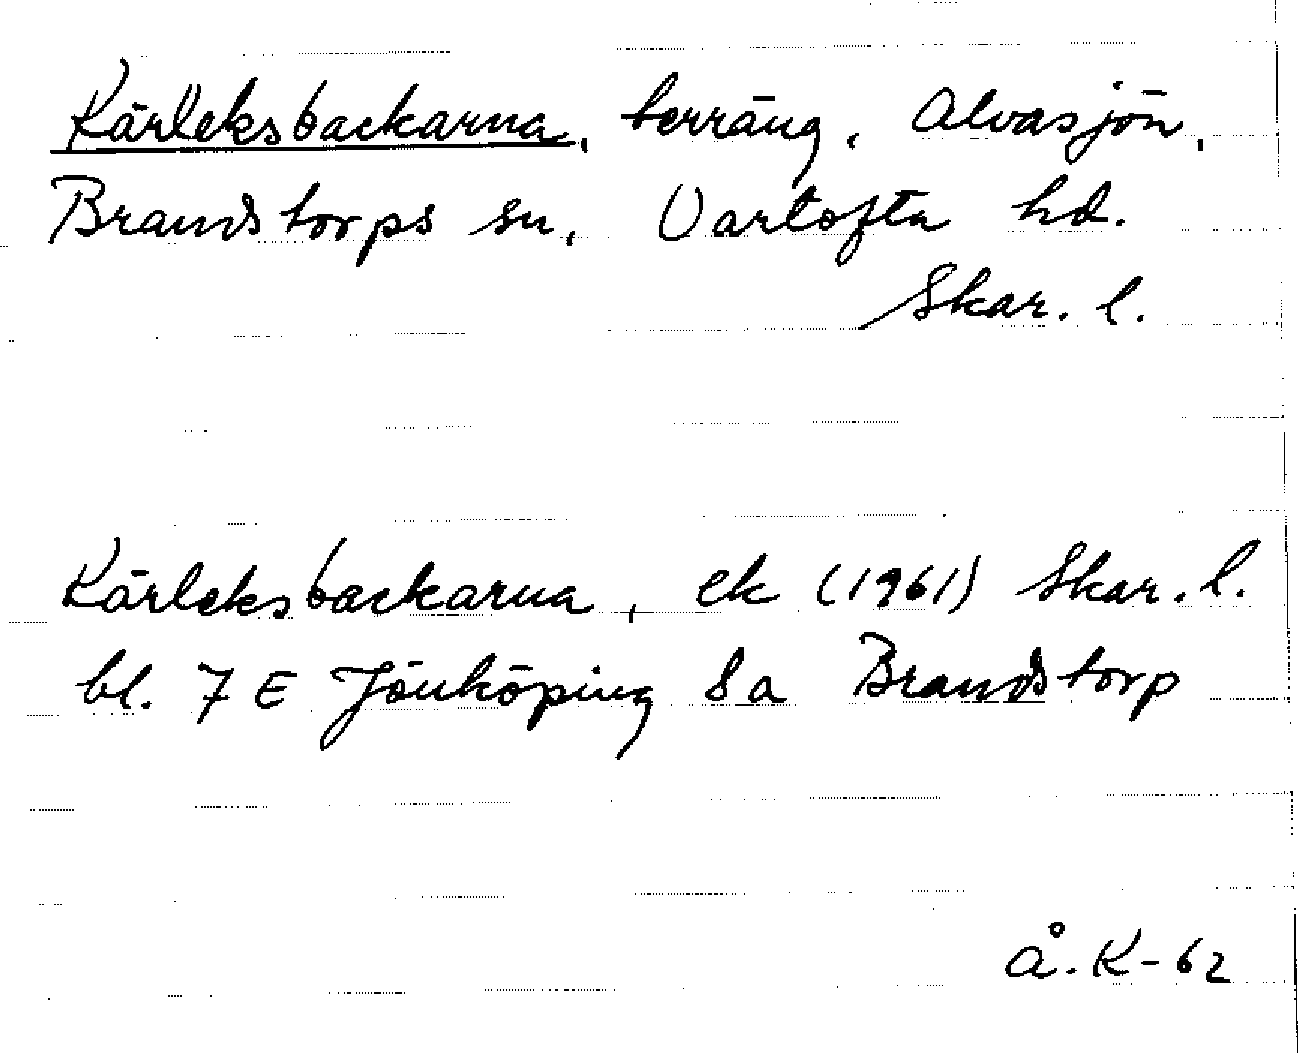 Kärleksbackarna, terräng, Alvasjön,
Brandstorps sn, Vartofta hd.
Skar. l.
Kärleksbackarna, ek (1961) Skar. l.
bl. 7 E Jönköping 8a Brandstorp
Å. K-62